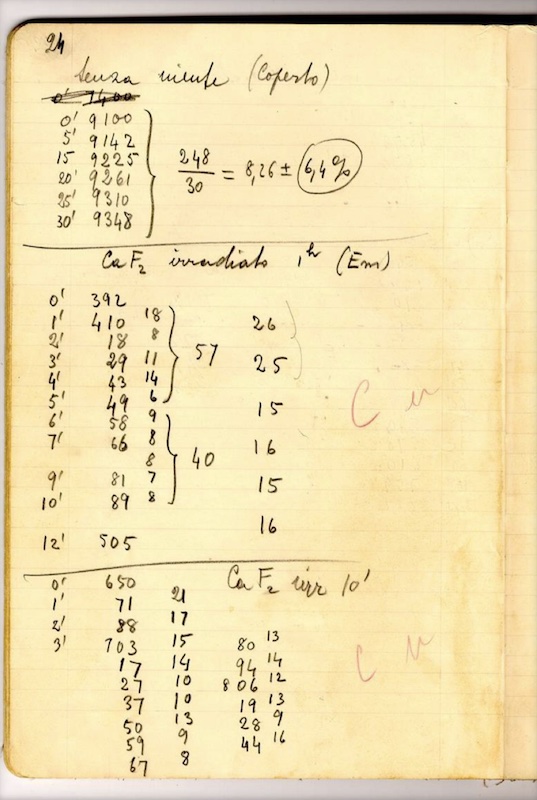 24
Senza niente (Coperto)
0' 9100
5' 9142
15 9225
20' 9261
25' 9310
30' 9348
248/30 = 8,26 ± 6,4%
CaF₂ irradiato 1ʰ (Em)
0' 392
1' 410 18 26
2' 18 8
3' 29 11 57 25
4' 43 14
5' 49 6 15
6' 58 9
7' 66 8 16
8 40
9' 81 7 15
10' 89 8
16
12' 505
0' 650 CaF₂ irr 10'
1' 71 21
2' 88 17
3' 703 15 80 13
17 14 94 14
27 10 806 12
37 10 19 13
50 13 28 9
59 9 44 16
67 8